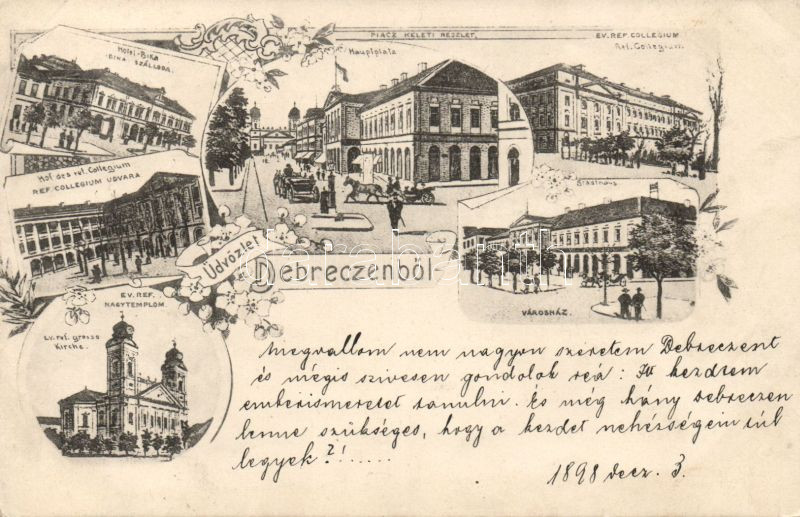 PIACZ KELETI RÉSZLET.
Hauptplatz
EV. REF. COLLEGIUM
Ref. Collegium.
Hotel-Bika
BIKA SZÁLLODA.
Hof des ref. Collegium
REF COLLEGIUM UDVARA
Stadthaus
VÁROSHÁZ.
Üdvözlet
Debreczenből
EV. REF.
NAGYTEMPLOM.
Ev. ref. grosse
Kirche.
megvallom nem nagyon szeretem Debreczent
és mégis szivesen gondolok reá: Itt kezdtem
emberismeretet tanulni. És még hány debreczen
lenne szükséges, hogy a kezdet nehézségein túl
legyek?!......
1898 decz. 3.